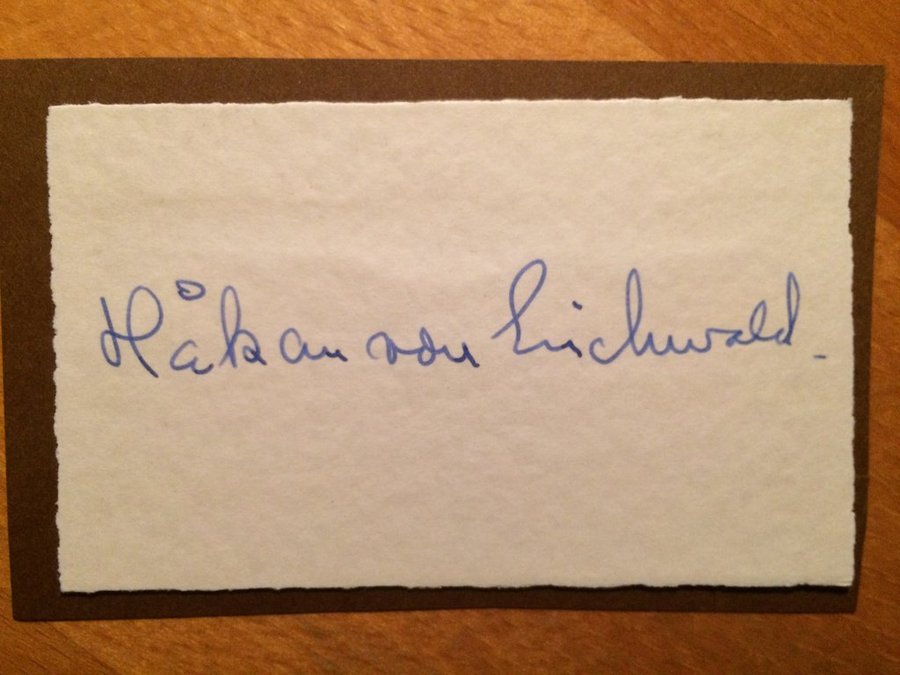 Håkan von Eichwald.